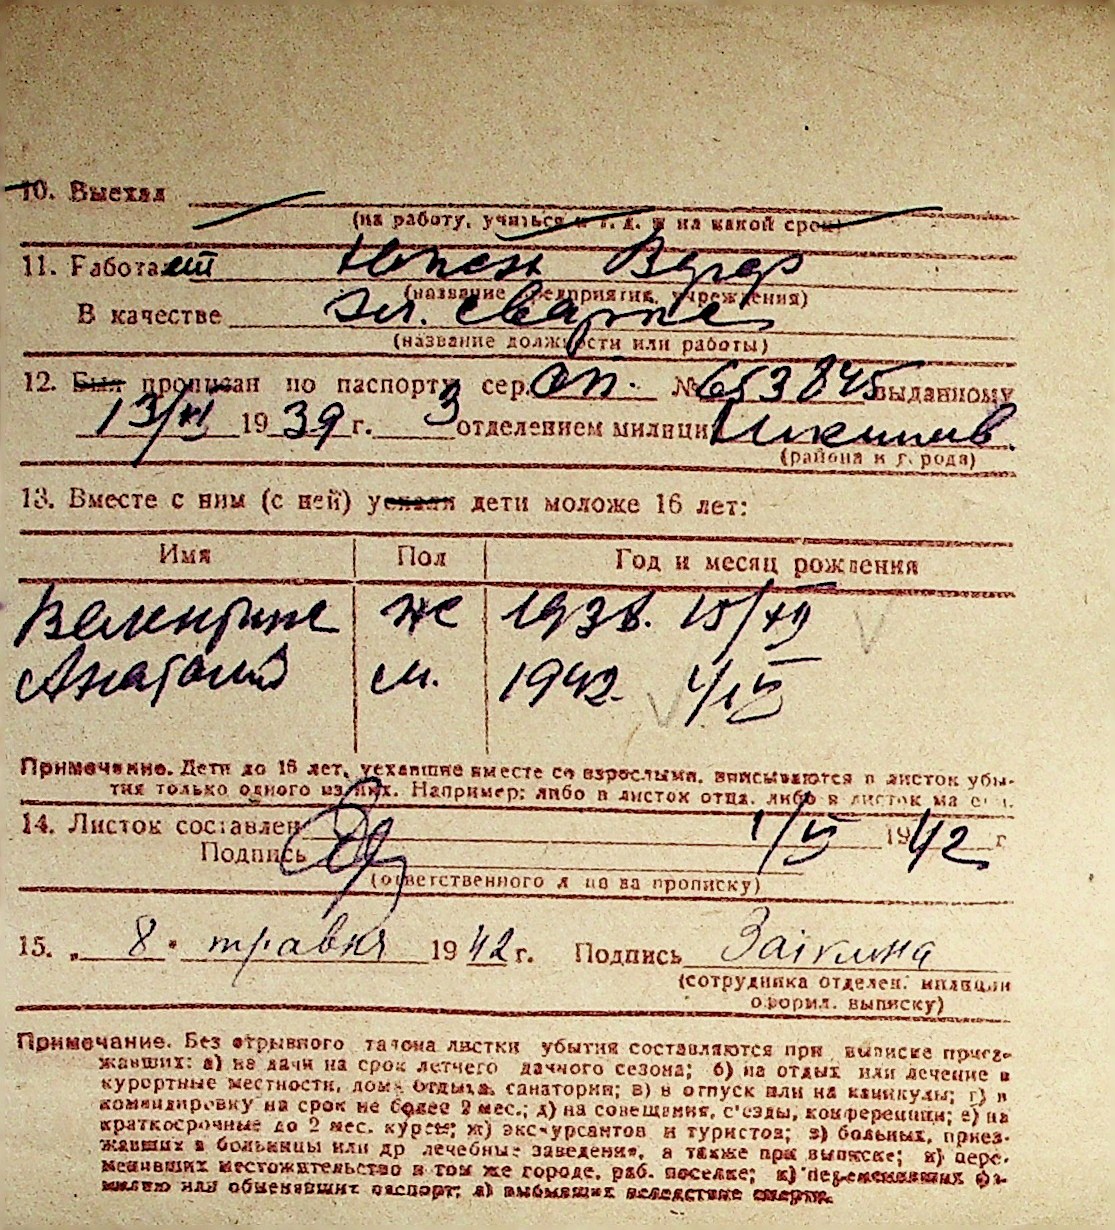 10. Выехал
(на работу, учиться и т. д. и на какой срок)
11. Работает
(название предприятия, учреждения)
В качестве эл. сварке
(название должности или работы)
12. Был прописан по паспорту сер. № 653845 выданному
13/ 1939 г. 3 отделением милиции
(района и города)
13. Вместе с ним (с ней) уехали дети моложе 16 лет:
Имя Пол Год и месяц рождения
Валентина же 1938. 15/XII
Анатолий м. 1942. 4/IV
Примечание. Дети до 16 лет, уехавшие вместе со взрослыми, вписываются в листок убы-
тия только одного из них. Например: либо в листок отца, либо в листок матери.
14. Листок составлен 1/V 1942 г
Подпись
(ответственного лица за прописку)
15. „ 8 " травня 1942 г. Подпись Заікина
(сотрудника отделен. милиции
оформл. выписку)
Примечание. Без отрывного талона листки убытия составляются при выписке приез-
жавших: а) на дачи на срок летнего дачного сезона; б) на отдых или лечение в
курортные местности, дома отдыха, санатории; в) в отпуск или на каникулы; г) в
командировку на срок не более 2 мес.; д) на совещания, с'езды, конференции; е) на
краткосрочные до 2 мес. курсы; ж) экскурсантов и туристов; з) больных, приез-
жавших в больницы или др лечебные заведения, а также при выписке; и) пере-
менивших местожительство в том же городе, раб. поселке; к) переменивших фа-
милию или обменявших паспорт; л) выбывших вследствие смерти.